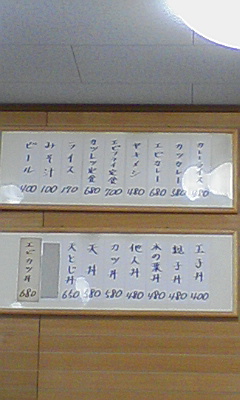 カレーライス 480
カツカレー 580
エビカレー 680
ヤキメシ 480
エビフライ定食 700
カツレツ定食 680
ライス 170
みそ汁 100
ビール 400
玉子丼 400
親子丼 480
木の葉丼 480
他人丼 480
カツ丼 580
天丼 580
天とじ丼 650
エビカツ丼 680